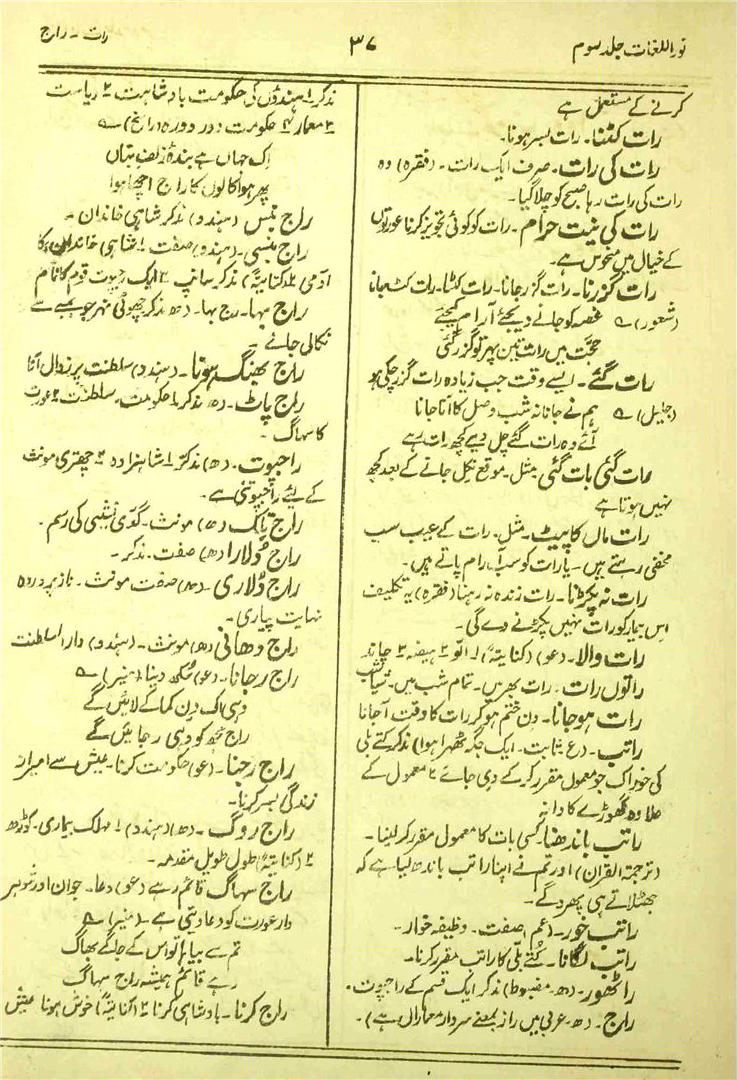 نور اللغات جلد سوم
۳۷
رات - راج
کرنے کے مستعمل ہے
رات کٹنا۔ رات بسر ہونا۔
رات کی رات۔ صرف ایک رات۔ (فقرہ) وہ
رات کی رات رہا صبح کو چلا گیا۔
رات کی نیت حرام۔ رات کو کوئی تجویز کرنا عورتوں
کے خیال میں منحوس ہے۔
رات گزرنا۔ رات گزر جانا۔ رات کٹنا۔ رات کٹ جانا
(شعور) ؎ غصہ کو جانے دیجئے آرام کیجئے
حجت میں رات تین پہر تو گزر گئی
رات گئے۔ ایسے وقت جب زیادہ رات گزر چکی ہو
(جلیل) ؎ ہم نے جانا نہ شب وصل کا آنا جانا
آئے وہ رات گئے چل دیے کچھ رات رہے
رات گئی بات گئی۔ مثل۔ موقع نکل جانے کے بعد کچھ
نہیں ہوتا ہے
رات ماں کا پیٹ۔ مثل۔ رات کے عیب سب
مخفی رہتے ہیں۔ یا رات کو سب آرام پاتے ہیں۔
رات نہ پکڑنا۔ رات زندہ نہ رہنا (فقرہ) یہ تکلیف
اس بیمار کو رات نہیں پکڑنے دے گی۔
رات والا۔ (عو) (کنایتہً) ۱۔ الّو ۲ ہیضہ ۳ چاند
راتوں رات۔ رات بھر میں۔ تمام شب میں۔ شباشب
رات ہو جانا۔ دن ختم ہو کر رات کا وقت آجانا
راتب۔ (ع ثابت۔ ایک جگہ ٹھہرا ہوا) مذکر کتے بلی
کی خوراک جو معمول مقرر کر کے دی جائے ۲ معمول کے
علاوہ گھوڑے کا دانہ
راتب باندھنا۔ کسی بات کا معمول مقرر کر لینا۔
(ترجمۃ القرآن) اور تم نے اپنا راتب باندھ لیا ہے کہ
جھٹلاتے ہی پھرو گے۔
راتب خور۔ (عم) صفت۔ وظیفہ خوار۔
راتب لگانا۔ کتے بلی کا راتب مقرر کرنا۔
راٹھور۔ (ھ۔ مضبوط) مذکر ایک قسم کے راجپوت۔
راج۔ (ھ۔ عربی میں راز بمعنے سردار معماراں ہے)۔
مذکر ۱ ہندؤں کی حکومت بادشاہت ۲ ریاست
۳ معمار ۴ حکومت۔ دور دورہ (راغ) ؎
اک جہاں ہے بندۂ زلف بتاں
پھر ہوا کالوں کا راج اچھا ہوا
راج بنس (ہندو) مذکر شاہی خاندان۔
راج بنسی۔ (ہندو) صفت ۱ شاہی خاندان کا
آدمی ۲ (کنایتہً) مذکر سانپ ۳ ایک راجپوت قوم کا نام
راج بہا۔ رج بہا۔ (ھ) مذکر چھوٹی نہر جو بمبے سے
نکالی جائے۔
راج بھنگ ہونا۔ (ہندو) سلطنت پر زوال آنا
راج پاٹ۔ (ھ) مذکر ۱ حکومت۔ سلطنت ۲ عورت
کا سہاگ۔
راجپوت۔ (ھ) مذکر ۱ شاہزادہ ۲ چھتری مونث
کے لئے راجپوتنی ہے۔
راج تلک (ھ) مونث۔ گدّی نشینی کی رسم۔
راج دُلارا (ھ) صفت۔ مذکر۔
راج دُلاری۔ (ھ) صفت مونث۔ ناز پروردہ
نہایت پیاری۔
راج دھانی (ھ) مونث۔ (ہندو) دار السلطنت
راج رجانا۔ (عو) سُکھ دینا (منیر) ؎
وہی اک دن کما کے لائیں گے
راج تجھ کو وہی رجائیں گے
راج رجنا۔ (عو) حکومت کرنا۔ عیش سے امیرانہ
زندگی بسر کرنا۔
راج روگ۔ (ھ) (ہندو) ۱ مہلک بیماری۔ کوڑھ
۲ (کنایتہً) طول طویل مقدمہ۔
راج سہاگ قائم رہے (عو) دعا۔ جوان اور شوہر
دار عورت کو دعا دیتی ہے۔ (منیر) ؎
تم سے بیاہا تو اس کے جاگے بھاگ
رہے قائم ہمیشہ راج سہاگ
راج کرنا۔ بادشاہی کرنا ۲ (کنایتہً) خوش ہونا عیش